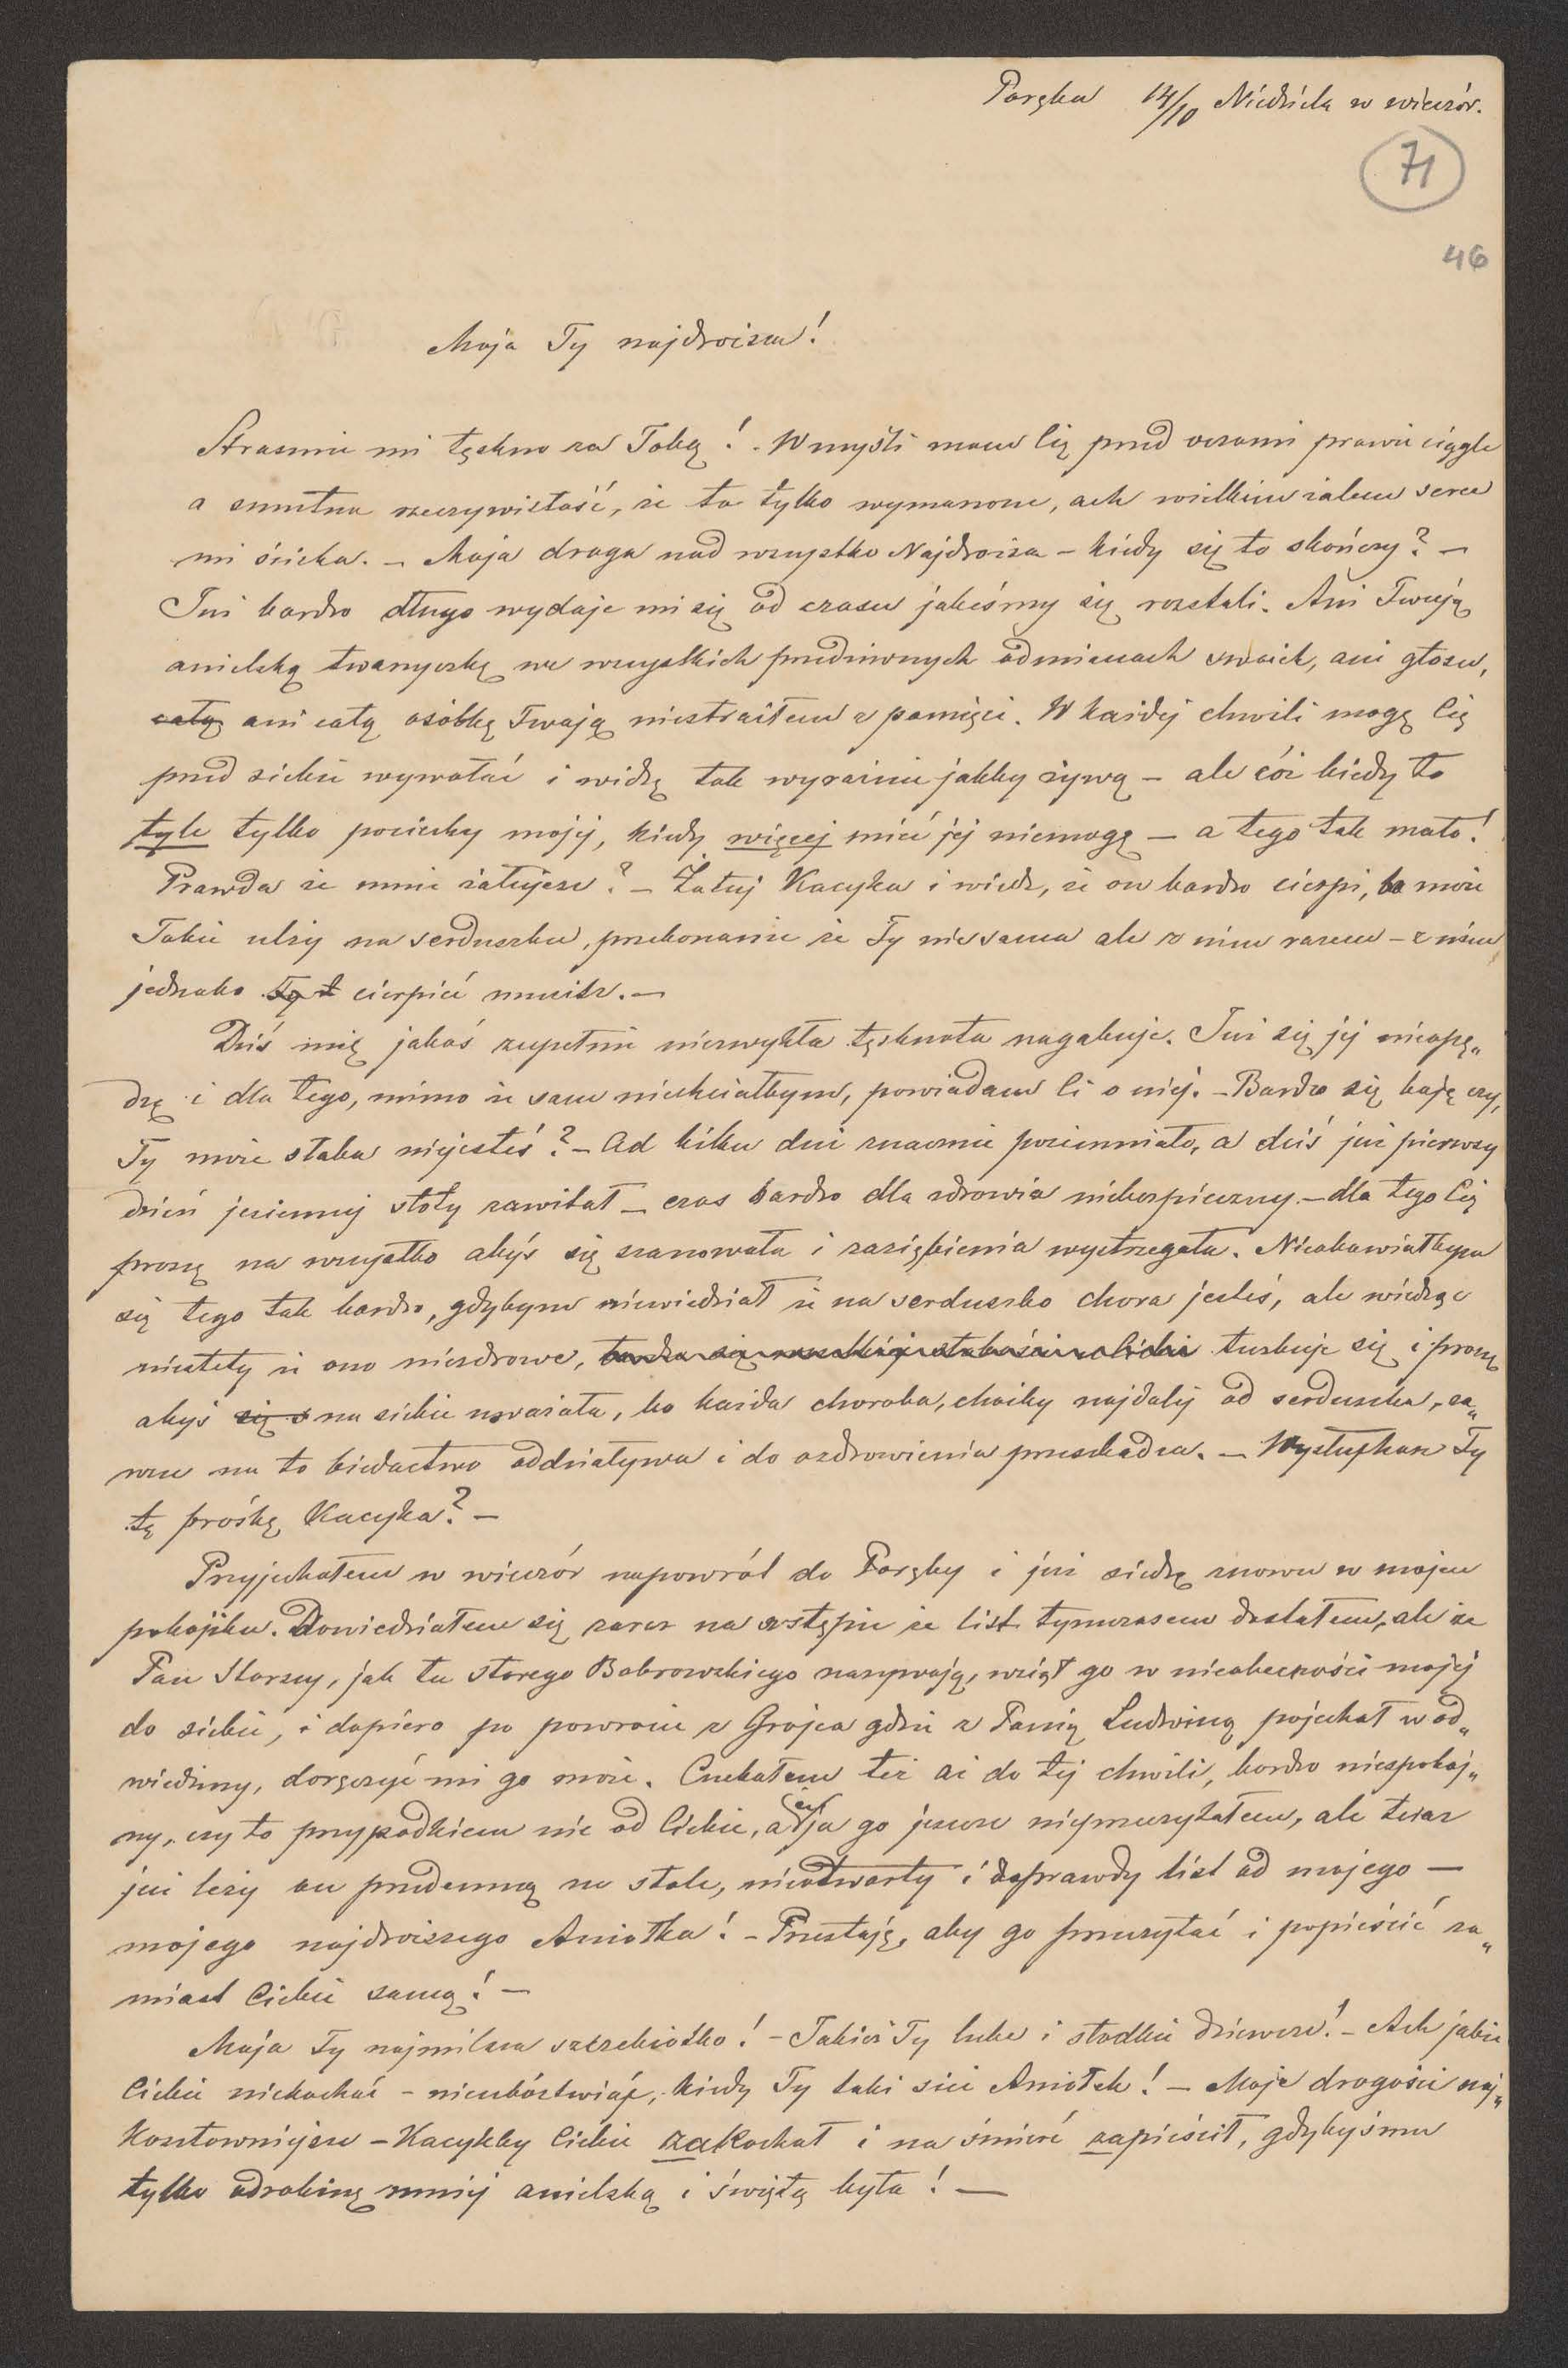 Poręba 14/10 Niedziela w wieczór.
71
46
Moja Ty najdroższa!
Strasznie mi tęskno za Tobą! W myśli mam Cię przed oczami prawie ciągle
a smutna rzeczywistość, że to tylko wymarzone, ach wielkim żalem serce
mi ściska. – Moja droga nad wszystko Najdroższa – kiedy się to skończy? –
Już bardzo długo wydaje mi się od czasu jakeśmy się rozstali. Ani Twoją
anielską twarzyczkę we wszystkich przedziwnych odmianach swoich, ani głosu,
całą ani całą osóbkę Twoją niestraciłem z pamięci. W każdej chwili mogę Cię
przed siebie wywołać i widzę tak wyraźnie jakby żywą – ale cóż kiedy to
tyle tylko pociechy mojej, kiedy więcej mieć jej niemogę – a tego tak mało!
Prawda że mnie żałujesz? – Żałuj Kacyka i wiedz, że on bardzo cierpi, to może
Tobie ulży na serduszku, przekonanie że Ty nie sama ale z nim razem – z nim
jednako Ty t cierpieć musisz. –
Dziś mię jakoś zupełnie niezwykła tęsknota nagabuje. Już się jej nieopę„
dzę i dla tego, mimo że sam niechciałbym, powiadam Ci o niej. – Bardzo się boję czy,
Ty może słaba niejesteś? – Od kilku dni znacznie pozimniało, a dziś już pierwszy
dzień jesiennej słoty zawitał – czas bardzo dla zdrowia niebezpieczny. – dla tego Cię
proszę na wszystko abyś się szanowała i zaziębienia wystrzegała. Nieobawiałbym
się tego tak bardzo, gdybym niewiedział że na serduszko chora jesteś, ale wiedząc
niestety że ono niezdrowe, turbuje się i proszę
abyś się s na siebie uważała, bo każda choroba, choćby najdalej od serduszka, za„
wsze na to biedactwo oddziaływa i do ozdrowienia przeszkadza. – Wysłuchasz Ty
tę prośbę Kacyka? –
Przyjechałem w wieczór napowrót do Poręby i już siedzę znowu w mojem
pokojiku. Dowiedziałem się zaraz na wstępie że list tymczasem dostałem, ale że
Pan Starszy, jak tu starego Bobrowskiego nazywają, wziął go w nieobecności mojej
do siebie, i dopiero po powrocie z Grojca gdzie z Panią Ludwiną pojechał w od„
wiedziny, doręczyć mi go może. Czekałem też aż do tej chwili, bardzo niespokoj„
ny, czy to przypadkiem nie od Ciebie, a ja go jeszcze nieprzeczytałem, ale teraz
już leży on przedemną na stole, nieotwarty i doprawdy list od mojego –
mojego najdroższego Aniołka! – Przestaję, aby go przeczytać i popieścić za„
miast Ciebie samą! –
Moja Ty najmilsza szczebiotko! – Jakież Ty lube i słodkie dziewcze! – Ach jakże
Ciebie niekochać – nieubóstwiać, kiedy Ty taki sii Aniołek! – Moje drogości naj„
kosztowniejsze – Kacykby Ciebie zakochał i na śmierć zapieścił, gdybyś mu
tylko odrobinę mniej anielską i świętą była! –